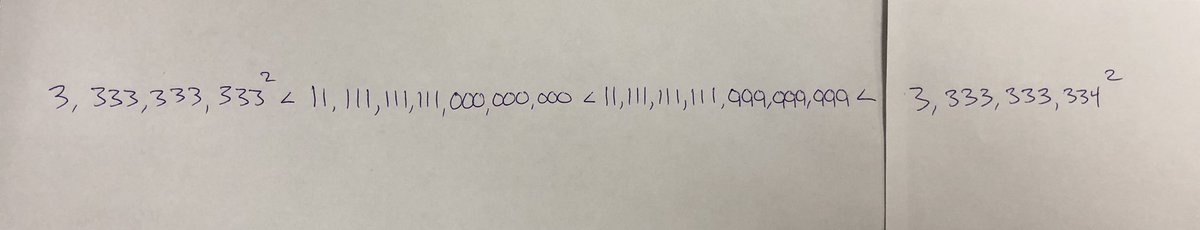 3,333,333,333² < 11,111,111,111,000,000,000 < 11,111,111,111,999,999,999 < 3,333,333,334²